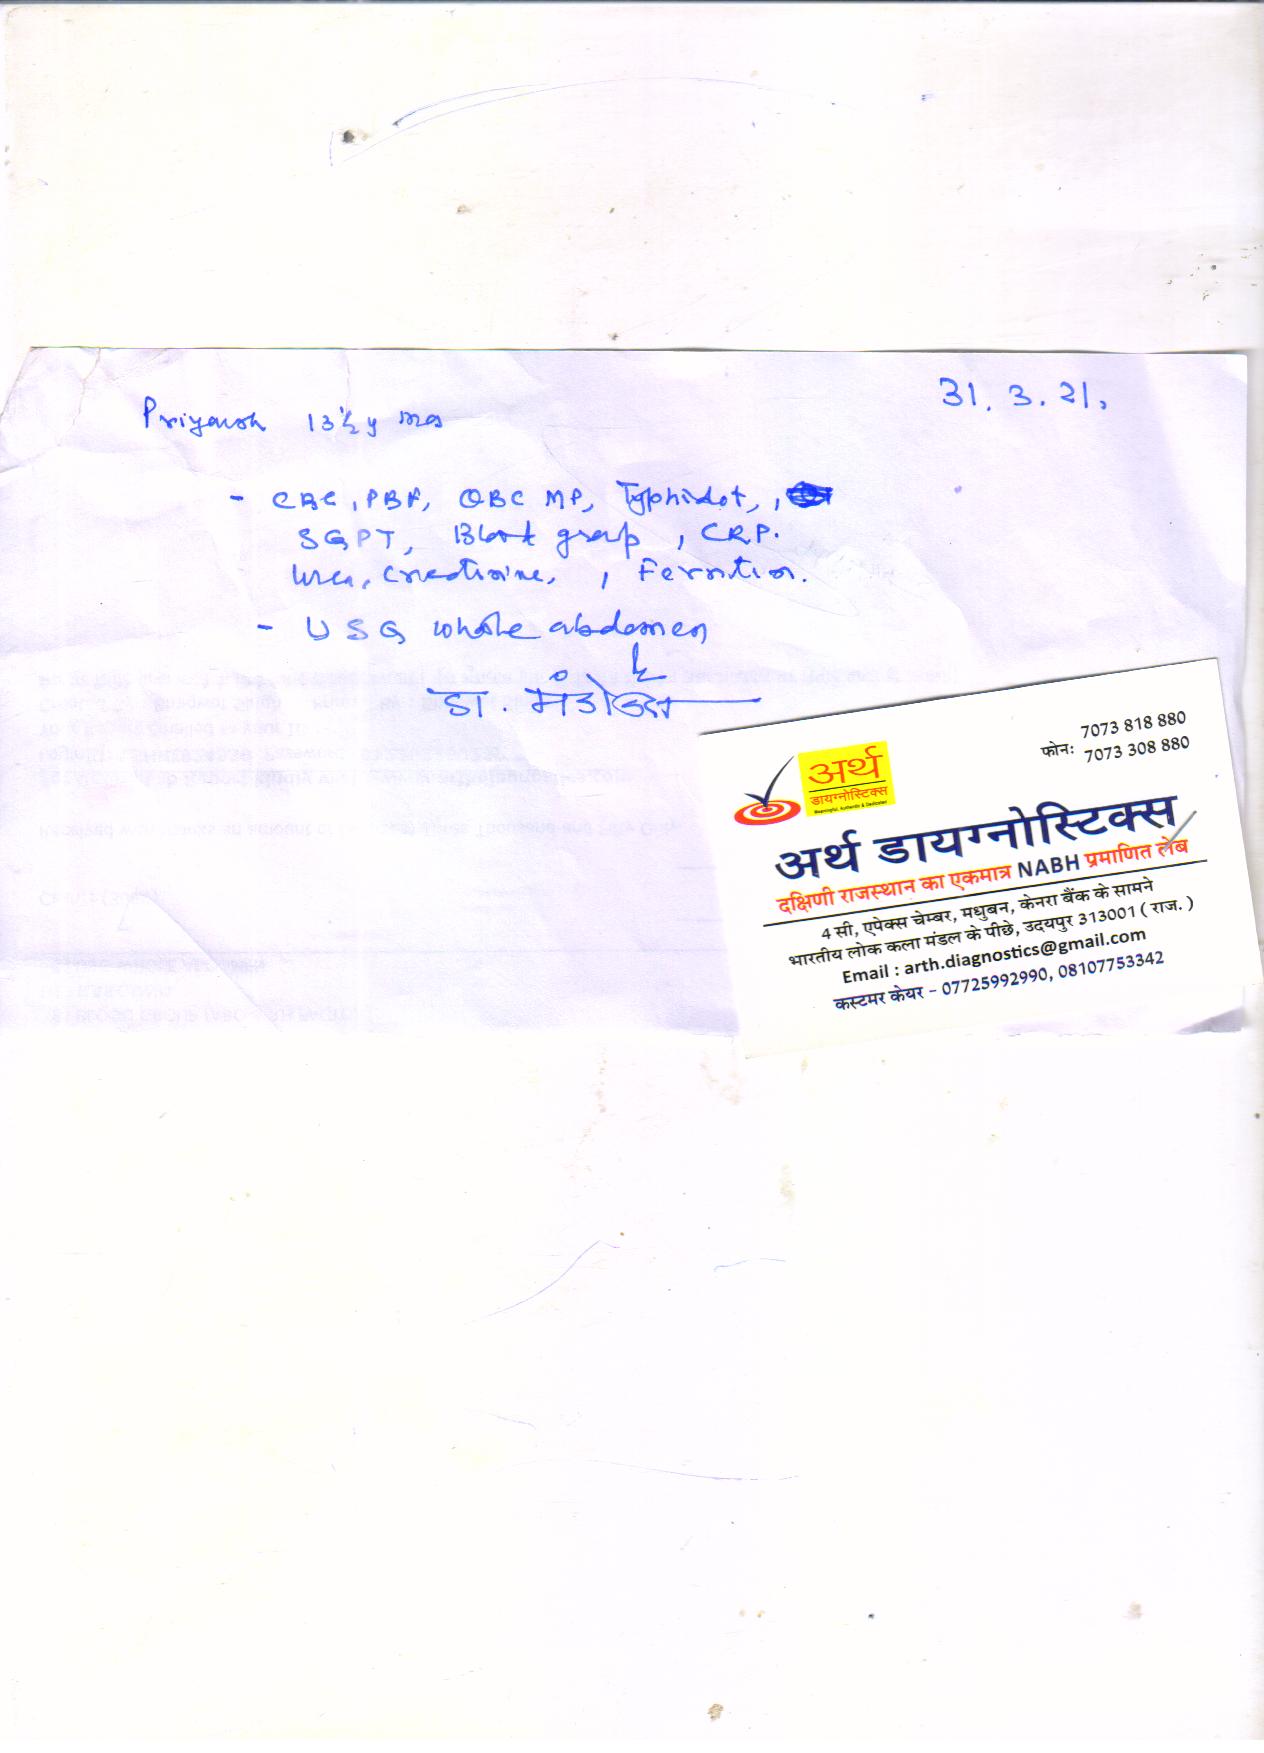 31.3.21.
Priyansh 13½ y
- CBC, PBF, QBC MP, Typhidot, ,
SGPT, Blood group, CRP.
Urea, Creatinine, , Ferritin.
- USG whole abdomen
डा.
7073 818 880
फोनः 7073 308 880
अर्थ
डायग्नोस्टिक्स
Meaningful, Authentic & Dedicated
अर्थ डायग्नोस्टिक्स
दक्षिणी राजस्थान का एकमात्र NABH प्रमाणित लेब
4 सी, एपेक्स चेम्बर, मधुबन, केनरा बैंक के सामने
भारतीय लोक कला मंडल के पीछे, उदयपुर 313001 ( राज. )
Email : arth.diagnostics@gmail.com
कस्टमर केयर - 07725992990, 08107753342